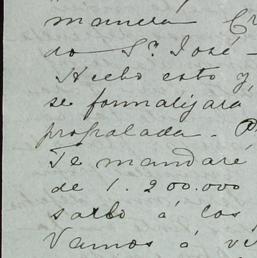 manera
do Sr. José -
Hecho esto y,
se formalizará
propalada -
Te mandaré
de 1.200.000
saldo á los
Vamos á ve